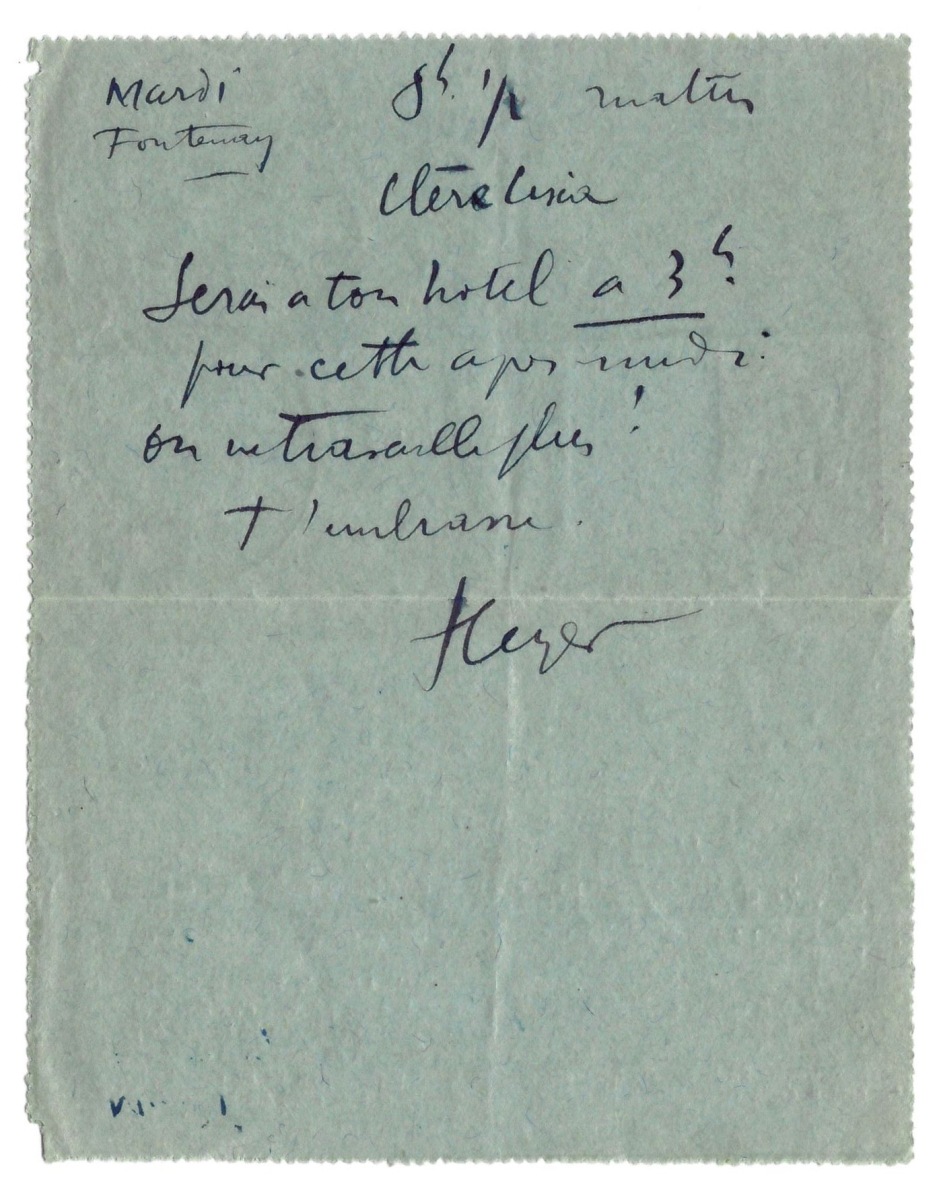 Mardi 8h. 1/2 matin
Fontenay
Chère Lucia
Serai a ton hotel a 3h.
pour cette apres midi.
on ne travaille plus !
t'embrasse.